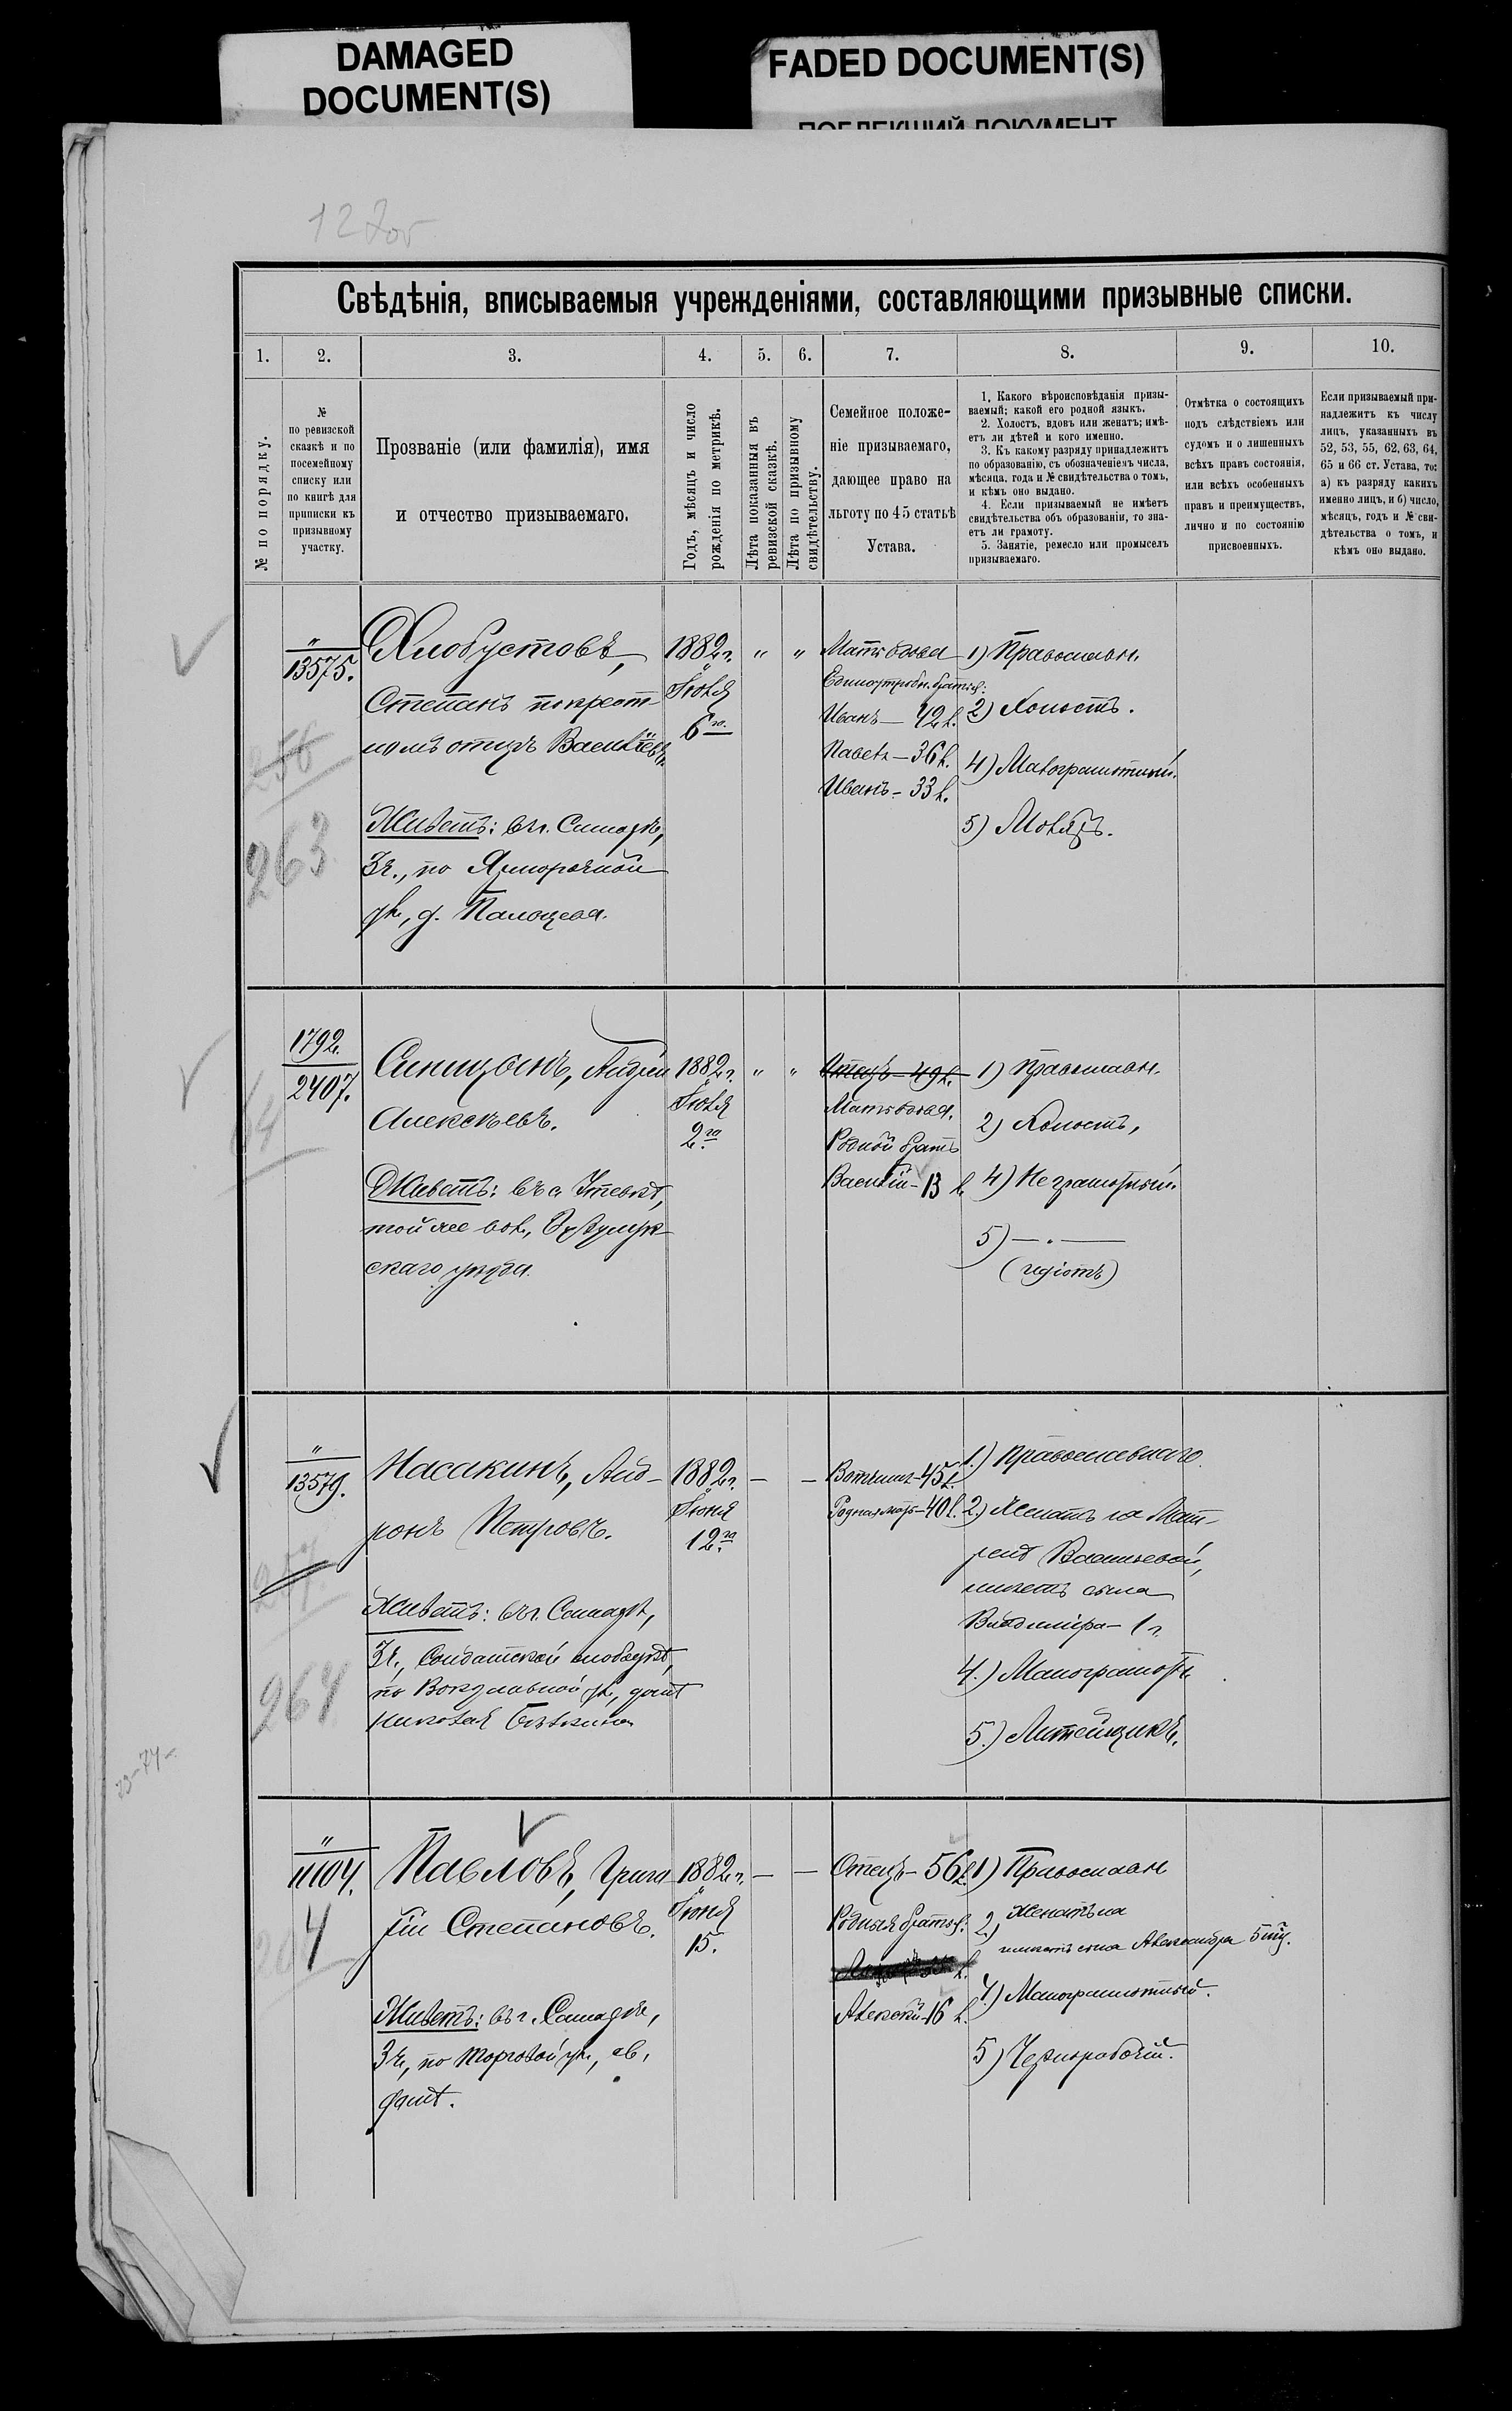 DAMAGED
DOCUMENT(S)
FADED DOCUMENT(S)
ПОБЛЕКШИЙ ДОКУМЕНТ
127об
Свѣдѣнія, вписываемыя учрежденіями, составляющими призывные списки.
1.
2.
3.
4.
5.
6.
7.
8.
9.
10.
№ по порядку.
№
по ревизской
сказкѣ и по
посемейному
списку или
по книгѣ для
приписки къ
призывному
участку.
Прозваніе (или фамилія), имя
и отчество призываемаго.
Годъ, мѣсяцъ и число
рожденія по метрикѣ.
Лѣта показанныя въ
ревизской сказкѣ.
Лѣта по призывному
свидѣтельству.
Семейное положе-
ніе призываемаго,
дающее право на
льготу по 45 статьѣ
Устава.
1. Какого вѣроисповѣданія призы-
ваемый; какой его родной языкъ.
2. Холостъ, вдовъ или женатъ; имѣ-
етъ ли дѣтей и кого именно.
3. Къ какому разряду принадлежитъ
по образованію, съ обозначеніемъ числа,
мѣсяца, года и № свидѣтельства о томъ,
и кѣмъ оно выдано.
4. Если призываемый не имѣетъ
свидѣтельства объ образованіи, то зна-
етъ ли грамоту.
5. Занятіе, ремесло или промыселъ
призываемаго.
Отмѣтка о состоящихъ
подъ слѣдствіемъ или
судомъ и о лишенныхъ
всѣхъ правъ состоянія,
или всѣхъ особенныхъ
правъ и преимуществъ,
лично и по состоянію
присвоенныхъ.
Если призываемый при-
надлежитъ къ числу
лицъ, указанныхъ въ
52, 53, 55, 62, 63, 64,
65 и 66 ст. Устава, то:
а) къ разряду какихъ
именно лицъ, и б) число,
мѣсяцъ, годъ и № сви-
дѣтельства о томъ, и
кѣмъ оно выдано.
"
13575.
256
263
Хлобустовъ,
Степанъ по крест-
ному отцу Васильевъ.
Живетъ: въ г. Самарѣ,
3 ч., по Ярморочной
ул., д.
1882 г.
Іюля
6го
"
"
Мать вдова
Единоутробн. братья:
Иванъ — 42 л.
Павелъ — 36 л.
Иванъ — 33 л.
1) Православн.
2) Холостъ.
4) Малограмотный.
5) Маляръ.
1792.
2407.
Синицынъ, Андрей
Алексѣевъ.
Живетъ: въ с. Утевкѣ,
той же вол., Бузулук-
скаго уѣзда.
1882 г.
Іюля
2го
"
"
Отецъ — 49 л.
Мать вдова.
Родной братъ
Василій — 13 л.
1) Православн.
2) Холостъ,
4) Неграмотный.
5) — . —
(идіотъ)
"
13579.
257
264
Насакинъ, Анд-
ронъ Петровъ.
Живетъ: въ г. Самарѣ,
3 ч., Солдатской слободкѣ,
по Вокзальной ул., домъ
Николая
1882 г.
Іюня
12го
—
—
Вотчимъ — 45 л.
Родная мать — 40 л.
1.) Православнаго
2.) Женатъ на Мат-
ренѣ Васильевой,
имѣетъ сына
Владиміра — 1 г.
4.) Малограмотн.
5.) Литейщикъ.
29-74-
"
11104.
4
Павловъ, Григо
рій Степановъ.
Живетъ: въ г. Самарѣ,
3 ч., по Торговой ул., св.
домъ.
1882 г.
Іюня
15.
—
—
Отецъ — 56 л.
Родныя братья:
Алексѣй — 16 л.
1) Православн
2.) Женатъ на
имѣетъ сына Александра 5 мѣс.
4.) Малограмотный.
5) Чернорабочій.